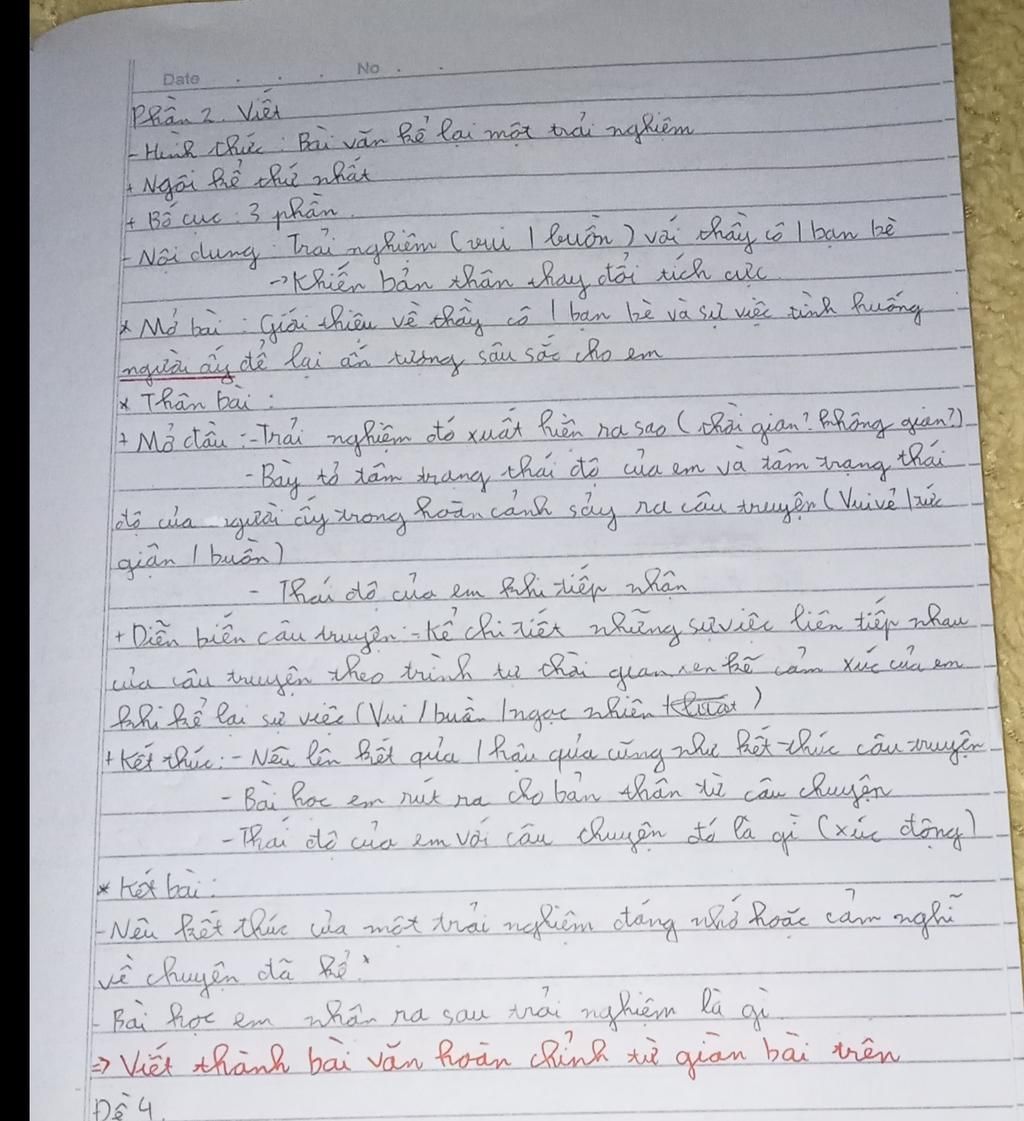 Date . . . No . .
Phần 2. Viết
- Hình thức: Bài văn kể lại một trải nghiệm
+ Ngôi kể thứ nhất
+ Bố cục: 3 phần.
- Nội dung: Trải nghiệm (vui / buồn) với thầy cô / bạn bè
→ Khiến bản thân thay đổi tích cực
* Mở bài: Giới thiệu về thầy cô / bạn bè và sự việc tình huống
người ấy để lại ấn tượng sâu sắc cho em
* Thân bài:
+ Mở đầu: - Trải nghiệm đó xuất hiện ra sao (thời gian? không gian?)
- Bày tỏ tâm trạng thái độ của em và tâm trạng thái
độ của người ấy trong hoàn cảnh sảy ra câu truyện (Vui vẻ / tức
giận / buồn)
- Thái độ của em khi tiếp nhận
+ Diễn biến câu truyện: - Kể chi tiết những sự việc liên tiếp nhau
của câu truyện theo trình tự thời gian xen kẽ cảm xúc của em
khi kể lại sự việc (Vui / buồn / ngạc nhiên)
+ Kết thúc: - Nêu lên kết qủa / hậu qủa cũng như kết thúc câu truyện
- Bài học em rút ra cho bản thân từ câu chuyện
- Thái độ của em với câu chuyện đó là gì (xúc động)
* Kết bài:
- Nêu kết thúc của một trải nghiệm đáng nhớ hoặc cảm nghĩ
về chuyện đã kể.
- Bài học em nhận ra sau trải nghiệm là gì
⇒ Viết thành bài văn hoàn chỉnh từ giàn bài trên
Đề 4.